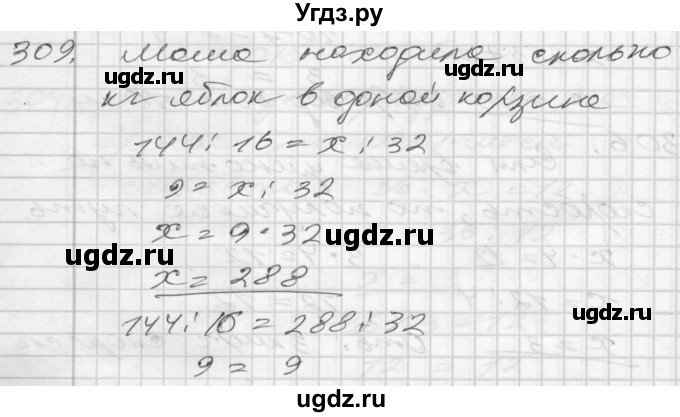 Угдз.ру
309. Маша находила сколько
кг яблок в одной корзине
144 : 16 = x : 32
9 = x : 32
x = 9 · 32
x = 288
144 : 16 = 288 : 32
9 = 9
ugdz.ru
ugdz.ru
ugdz.ru
ugdz.ru
ugdz.ru
ugdz.ru
ugdz.ru